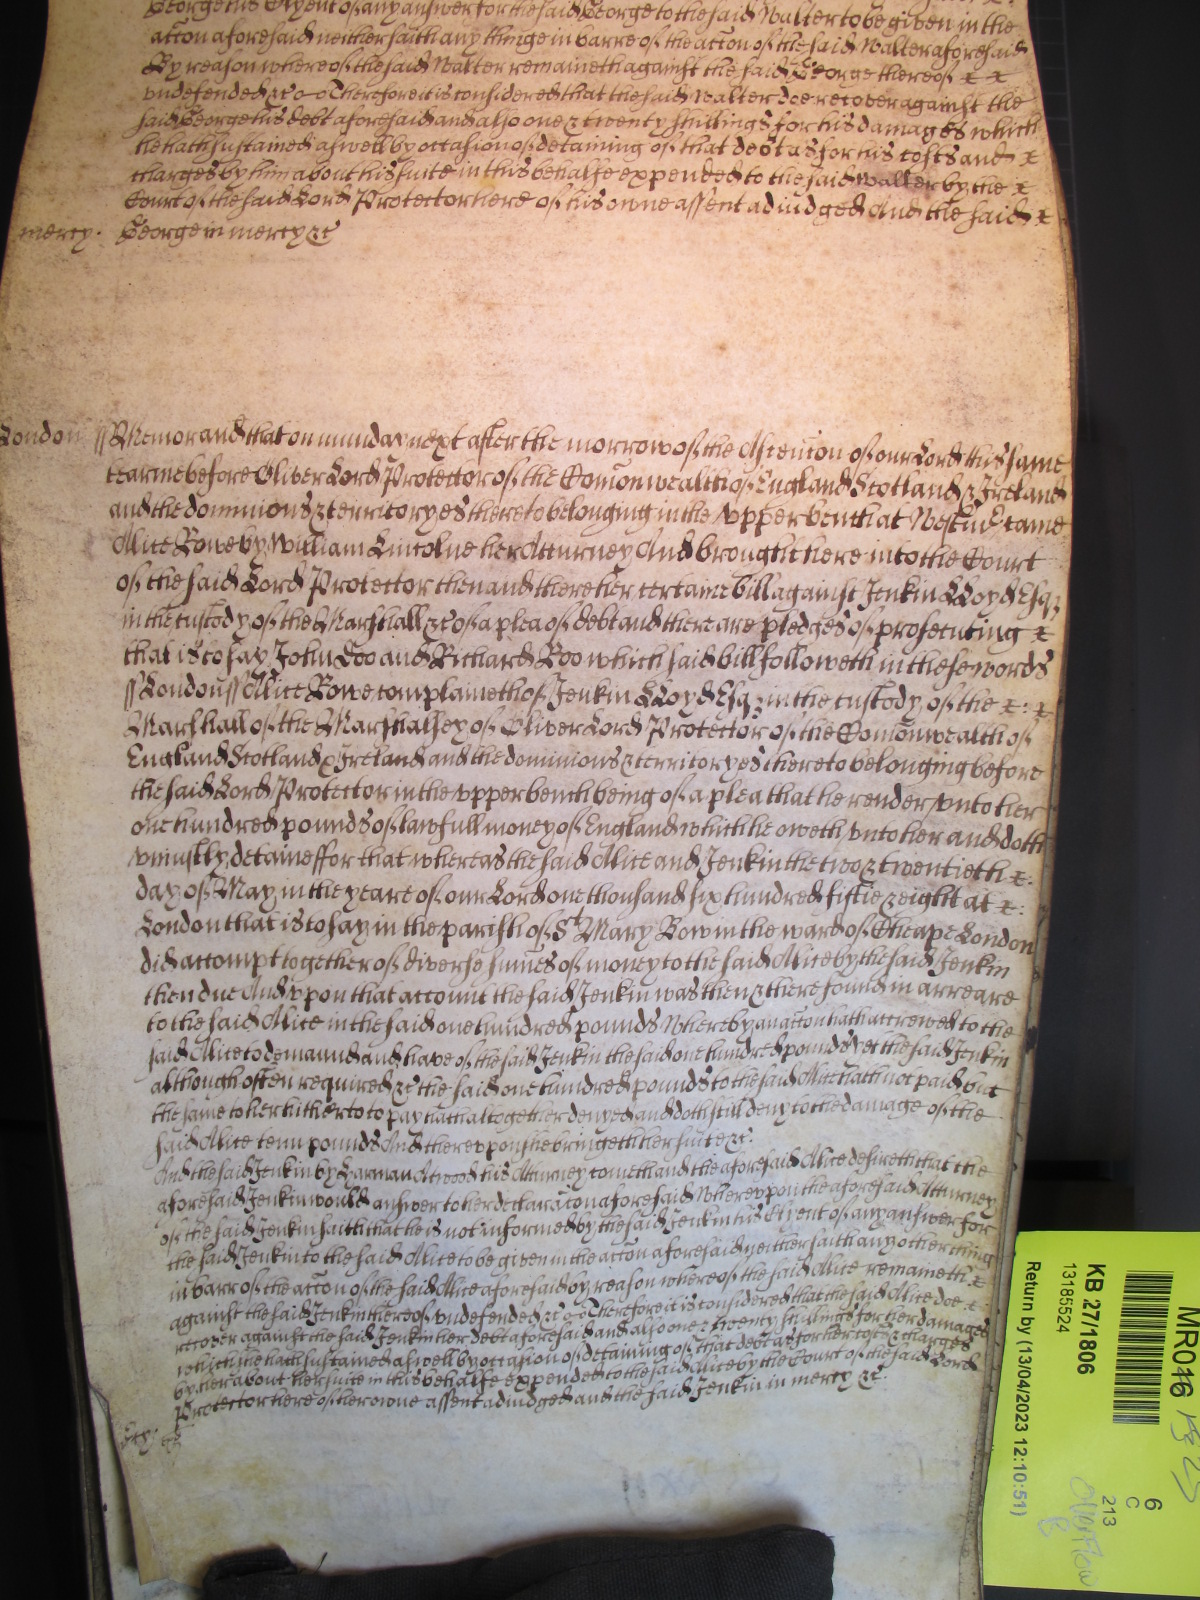 Georgeius Clyent of any answer for the said George to the said Walter to be given in the
accon aforesaid neither saith any thinge in barre of the accon of the said Walter aforesaid
By reason whereof the said Walter remaineth against the said George thereof
undefended &c Therefore it is considered that the said Walter doe recover against the
said George his debt aforesaid and also one & twenty shillings for his damages which
he hath sustained aswell by occasion of detaining of that debt as for his costs and
charges by him about his suite in this behalfe expended to the said Walter by the
Court of the said Lord Protector here of his owne assent adiudged And the said
mercy. George in mercy &c
London ss Memorand that on munday next after the morrow of the Ascencion of our Lord this same
tearme before Oliver Lord Protector of the Comonwealth of England Scotland & Ireland
and the dominions & territoryes thereto belonging in the upper bench at Westm came
Alice Rowe by William Lincolne her Atturney And brought here into the Court
of the said Lord Protector then and there her certaine bill against Jenkin LLoyd Esq;
in the custody of the Marshall &c of a plea of debt and there are pledges of prosecuting
that is to say John Doo and Richard Roo which said bill followeth in these words
ss London ss Alice Rowe complaineth of Jenkin LLoyd Esq; in the custody of the
Marshall of the Marshalsey of Oliver Lord Protector of the Comonwealth of
England Scotland & Ireland and the dominions & territoryes thereto belonging before
the said Lord Protector in the upper bench being of a plea that he render unto her
one hundred pounds of lawfull money of England which he oweth unto her and doth
uniustly detaine ffor that whereas the said Alice and Jenkin the two & twentieth
day of May in the yeare of our Lord one thousand six hundred fiftie & eight at
London that is to say in the parish of St Mary Bow in the ward of Cheape London
did accompt together of diverse sumes of money to the said Alice by the said Jenkin
then due And upon that account the said Jenkin was then & there found in arreare
to the said Alice in the said one hundred pounds Whereby an accon hath accrewed to the
said Alice to demaund and have of the said Jenkin the said one hundred pounds Yet the said Jenkin
although often required &c the said one hundred pounds to the said Alice hath not paid but
the same to her hitherto to pay hath altogether denyed and doth still deny to the damage of the
said Alice tenn pounds And thereupon she bringeth her suite &c.
And the said Jenkin by Harman Atwood his Atturney cometh and the aforesaid Alice desireth that the
aforesaid Jenkin would answer to her declaracon aforesaid Whereupon the aforesaid Atturney
of the said Jenkin saith that he is not informed by the said Jenkin his Clyent of any answer for
the said Jenkin to the said Alice to be given in the accon aforesaid neither saith any other thing
in barr of the accon of the said Alice aforesaid by reason whereof the said Alice remaineth
against the said Jenkin thereof undefended &c Therefore it is considered that the said Alice doe
recover against the said Jenkin her debt aforesaid and also one & twenty shillings for her damages
which she hath sustained aswell by occasion of detaining of that debt as for her costs & charges
by her about her suite in this behalfe expended to the said Alice by the Court of the said Lord
Protector here of her owne assent adiudged and the said Jenkin in mercy &c.
MR046
KB 27/1806
13185524
Return by (13/04/2023 12:10:51)
6
C
213
Overflow
B